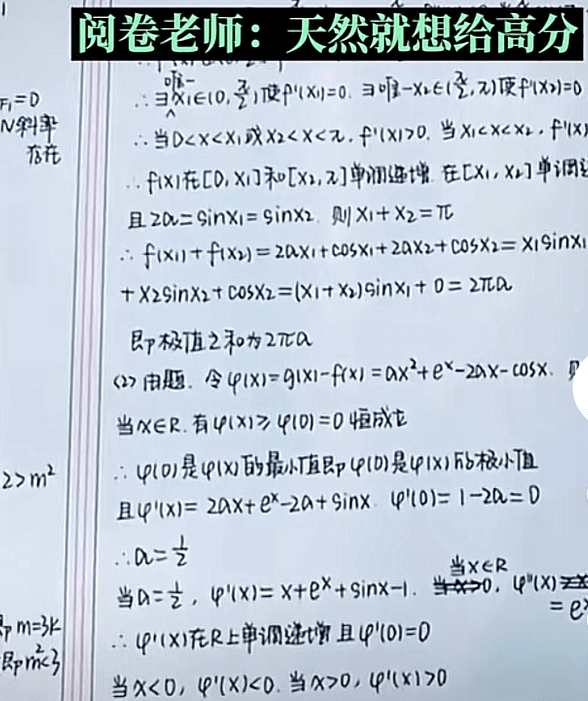 阅卷老师：天然就想给高分
唯一
∴∃x₁∈(0, π/2)使f'(x₁)=0. ∃唯一x₂∈(π/2, π)使f'(x₂)=0
F₁=0
N斜率
存在
∴当0<x<x₁或x₂<x<π, f'(x)>0. 当x₁<x<x₂, f'(x)
∴f(x)在[0, x₁]和[x₂, π]单调递增. 在[x₁, x₂]单调
且2a=sinx₁=sinx₂. 则x₁+x₂=π
∴f(x₁)+f(x₂)=2ax₁+cosx₁+2ax₂+cosx₂=x₁sinx₁
+x₂sinx₂+cosx₂=(x₁+x₂)sinx₁+0=2πa
即极值之和为2πa
(2) 由题. 令φ(x)=g(x)-f(x)=ax²+eˣ-2ax-cosx.
当x∈R. 有φ(x)≥φ(0)=0恒成立
∴φ(0)是φ(x)的最小值即φ(0)是φ(x)的极小值
2>m²
且φ'(x)=2ax+eˣ-2a+sinx. φ'(0)=1-2a=0
∴a=1/2
当x∈R
当a=1/2, φ'(x)=x+eˣ+sinx-1. 当x>0, φ''(x)
=eˣ
∴φ'(x)在R上单调递增且φ'(0)=0
即m=3k
即m²<3
当x<0, φ'(x)<0. 当x>0, φ'(x)>0